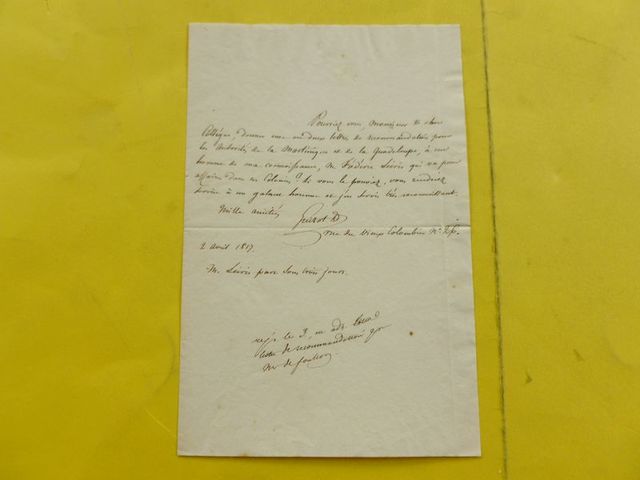 Pourriez vous, Monsieur & cher
Collègue, donner une ou deux lettres de recommandation pour
les autorités de la Martinique et de la Guadeloupe, à un
homme de ma connaissance, M. Frédéric qui va pour
affaires dans ces Colonies? Si vous le pouviez, vous rendriez
service à un galant homme et j'en serois très reconnaissant.
Mille amitiés
Guizot
rue du Vieux Colombier N°
2 avril 1817.
M. part dans trois jours.
le 3, en
lettre de recommandation
M. de